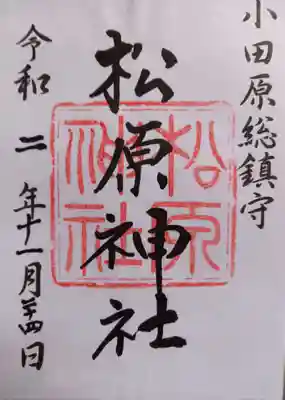 小田原総鎮守
松原神社
松原
神社
令和二年十一月廿四日